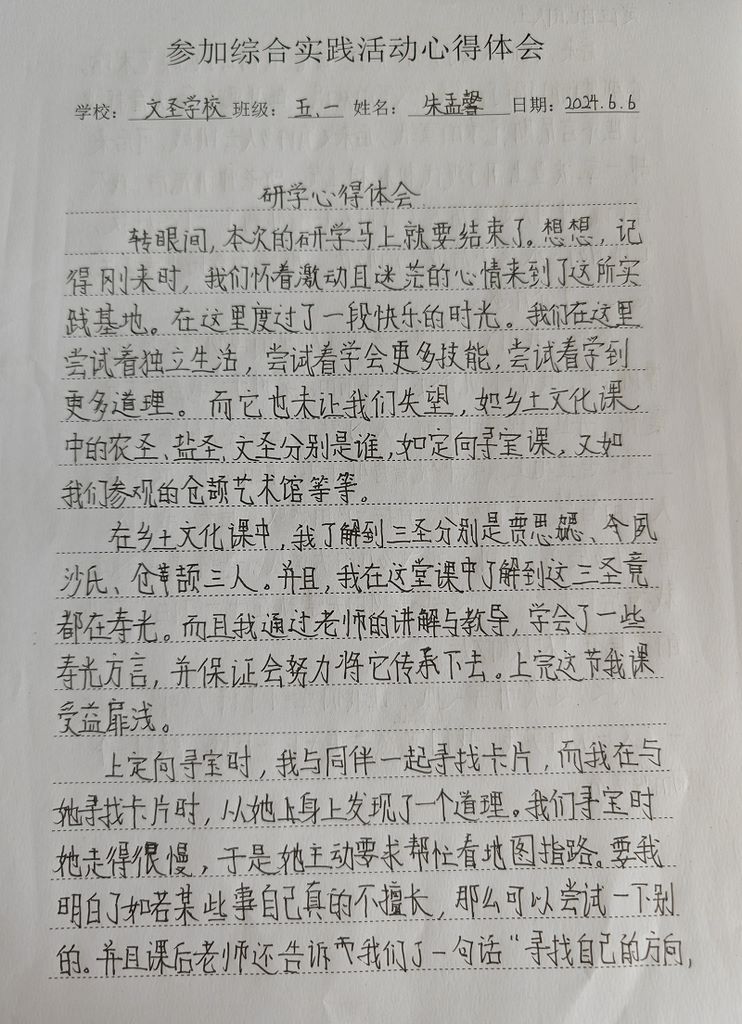 参加综合实践活动心得体会
学校：文圣学校 班级：五、一 姓名：朱孟馨 日期：2024.6.6
研学心得体会
转眼间，本次的研学马上就要结束了。想想，记
得刚来时，我们怀着激动且迷茫的心情来到了这所实
践基地。在这里度过了一段快乐的时光。我们在这里
尝试着独立生活，尝试着学会更多技能，尝试着学到
更多道理。而它也未让我们失望，如乡土文化课
中的农圣、盐圣、文圣分别是谁，如定向寻宝课，又如
我们参观的仓颉艺术馆等等。
在乡土文化课中，我了解到三圣分别是贾思勰、夙
沙氏、仓颉三人。并且，我在这堂课中了解到这三圣竟
都在寿光。而且我通过老师的讲解与教导，学会了一些
寿光方言，并保证会努力将它传承下去。上完这节我课
受益扉浅。
上定向寻宝时，我与同伴一起寻找卡片，而我在与
她寻找卡片时，从她上身上发现了一个道理。我们寻宝时
她走得很慢，于是她主动要求帮忙看地图指路。要我
明白了如若某些事自己真的不擅长，那么可以尝试一下别
的。并且课后老师还告诉我们了一句话“寻找自己的方向，